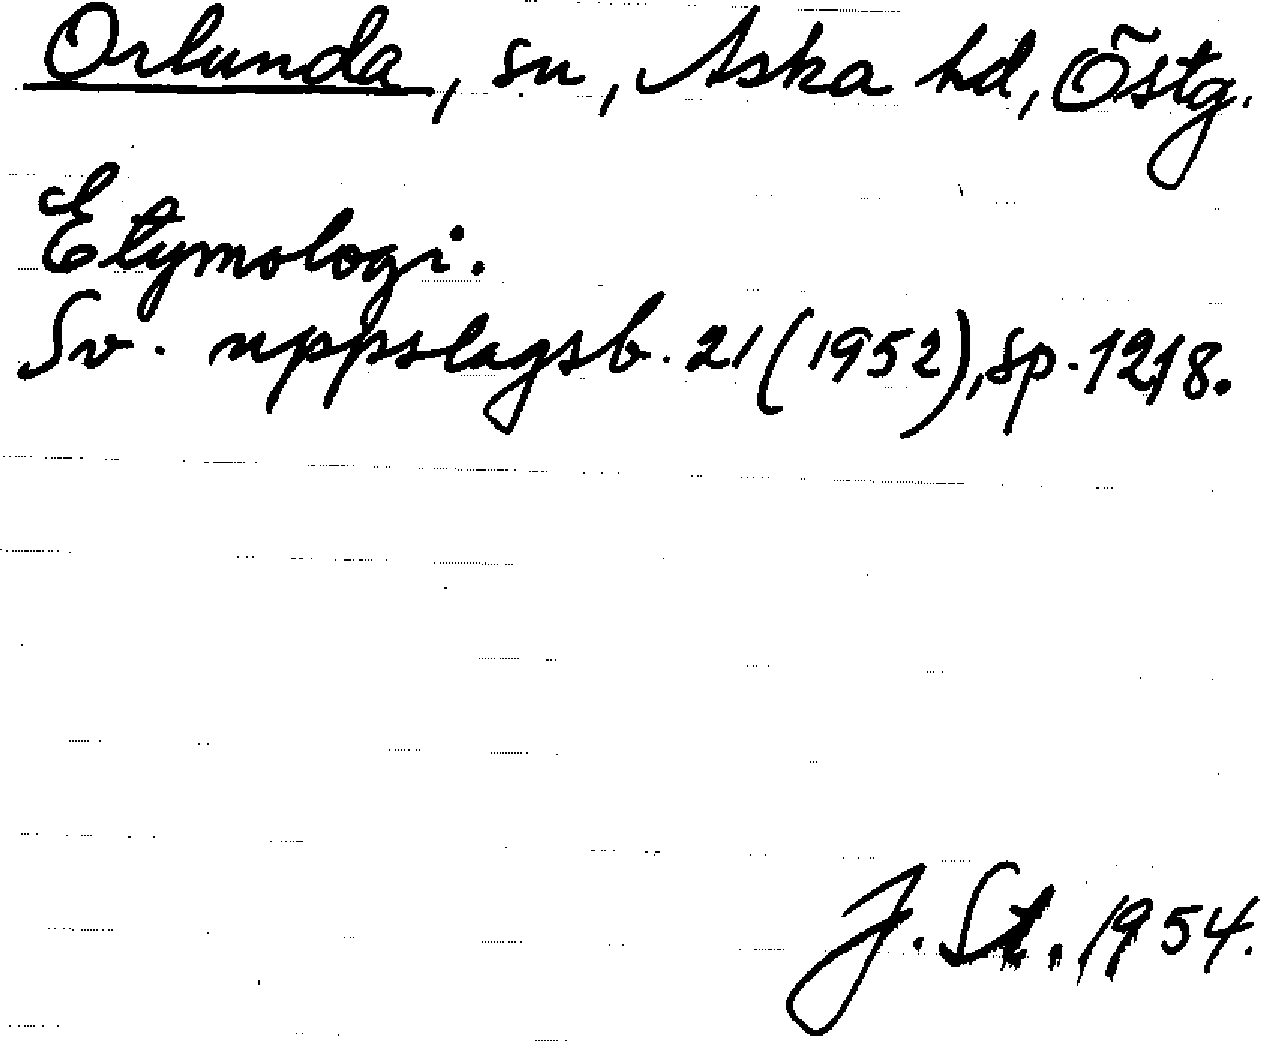 Orlunda, sn, Aska hd, Östg.
Etymologi.
Sv. uppslagsb. 21 (1952), sp. 1218.
J. St. 1954.